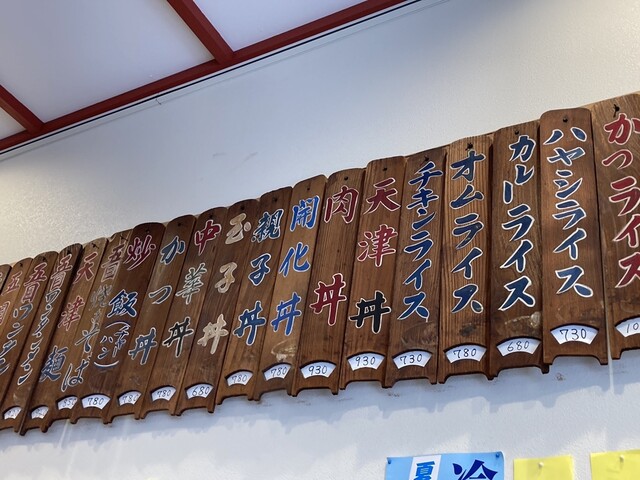 かつライス
10
ハヤシライス
730
カレーライス
680
オムライス
780
チキンライス
730
天津丼
930
肉丼
930
開化丼
780
親子丼
780
玉子丼
680
中華丼
780
かつ丼
780
炒飯(半汁)
780
五目焼そば
780
天華
五目ワンタン麺
五目ワンタン
夏
冷